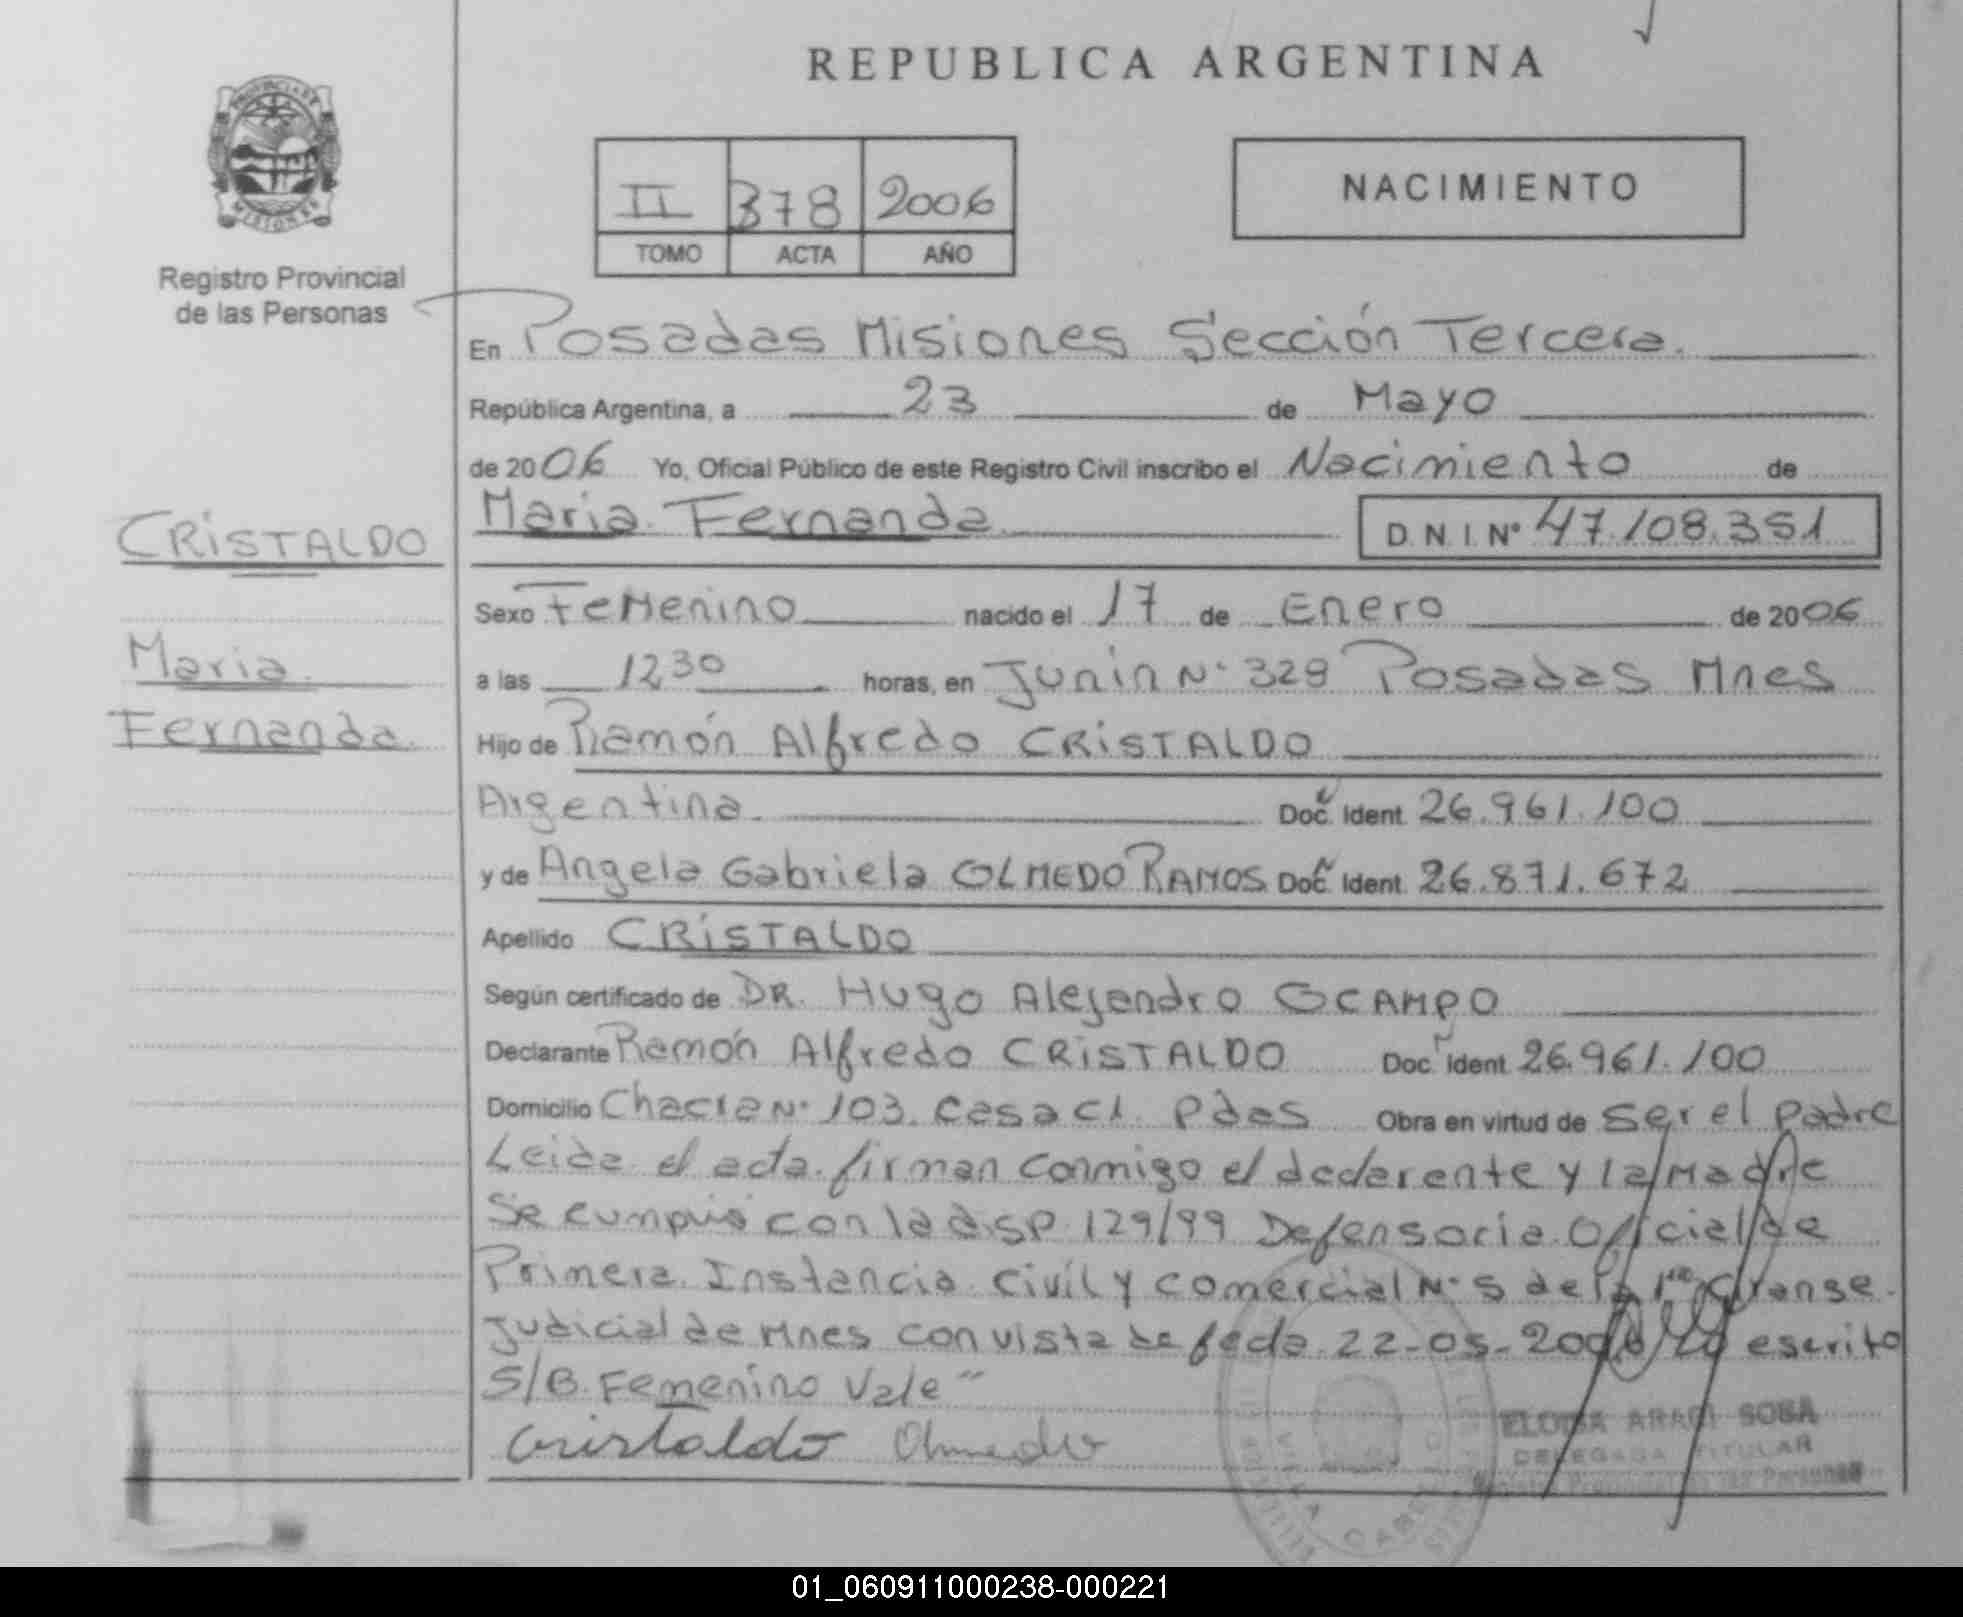 REPUBLICA ARGENTINA
PROVINCIA DE
MISIONES
Registro Provincial
de las Personas
II 378 2006
TOMO ACTA AÑO
NACIMIENTO
En Posadas Misiones Sección Tercera.
República Argentina, a 23 de Mayo
de 2006 Yo, Oficial Público de este Registro Civil inscribo el Nacimiento de
Maria Fernanda D.N.I. Nº 47.108.351
CRISTALDO
Maria
Fernanda
Sexo Femenino nacido el 17 de Enero de 2006
a las 12 30 horas, en Junin Nº 329 Posadas Mnes
Hijo de Ramón Alfredo CRISTALDO
Argentina. Doc. Ident. 26.961.100
y de Angela Gabriela OLMEDO RAMOS Doc. Ident. 26.871.672
Apellido CRISTALDO
Según certificado de DR. Hugo Alejandro OCAMPO
Declarante Ramón Alfredo CRISTALDO Doc. Ident. 26.961.100
Domicilio Chacra Nº 103. Casa C1. Pdas Obra en virtud de ser el padre
Leida el acta firman conmigo el declarante y la Madre
Se cumplió con la disp 129/99 Defensoria Oficial de
Primera Instancia Civil y Comercial Nº 5 de la 1ra
Judicial de Mnes con vista de fecha 22-05-2006 escrito
S/B. Femenino Vale"
Cristaldo Olmedo
SOSA
DELEGADA TITULAR
01_060911000238-000221